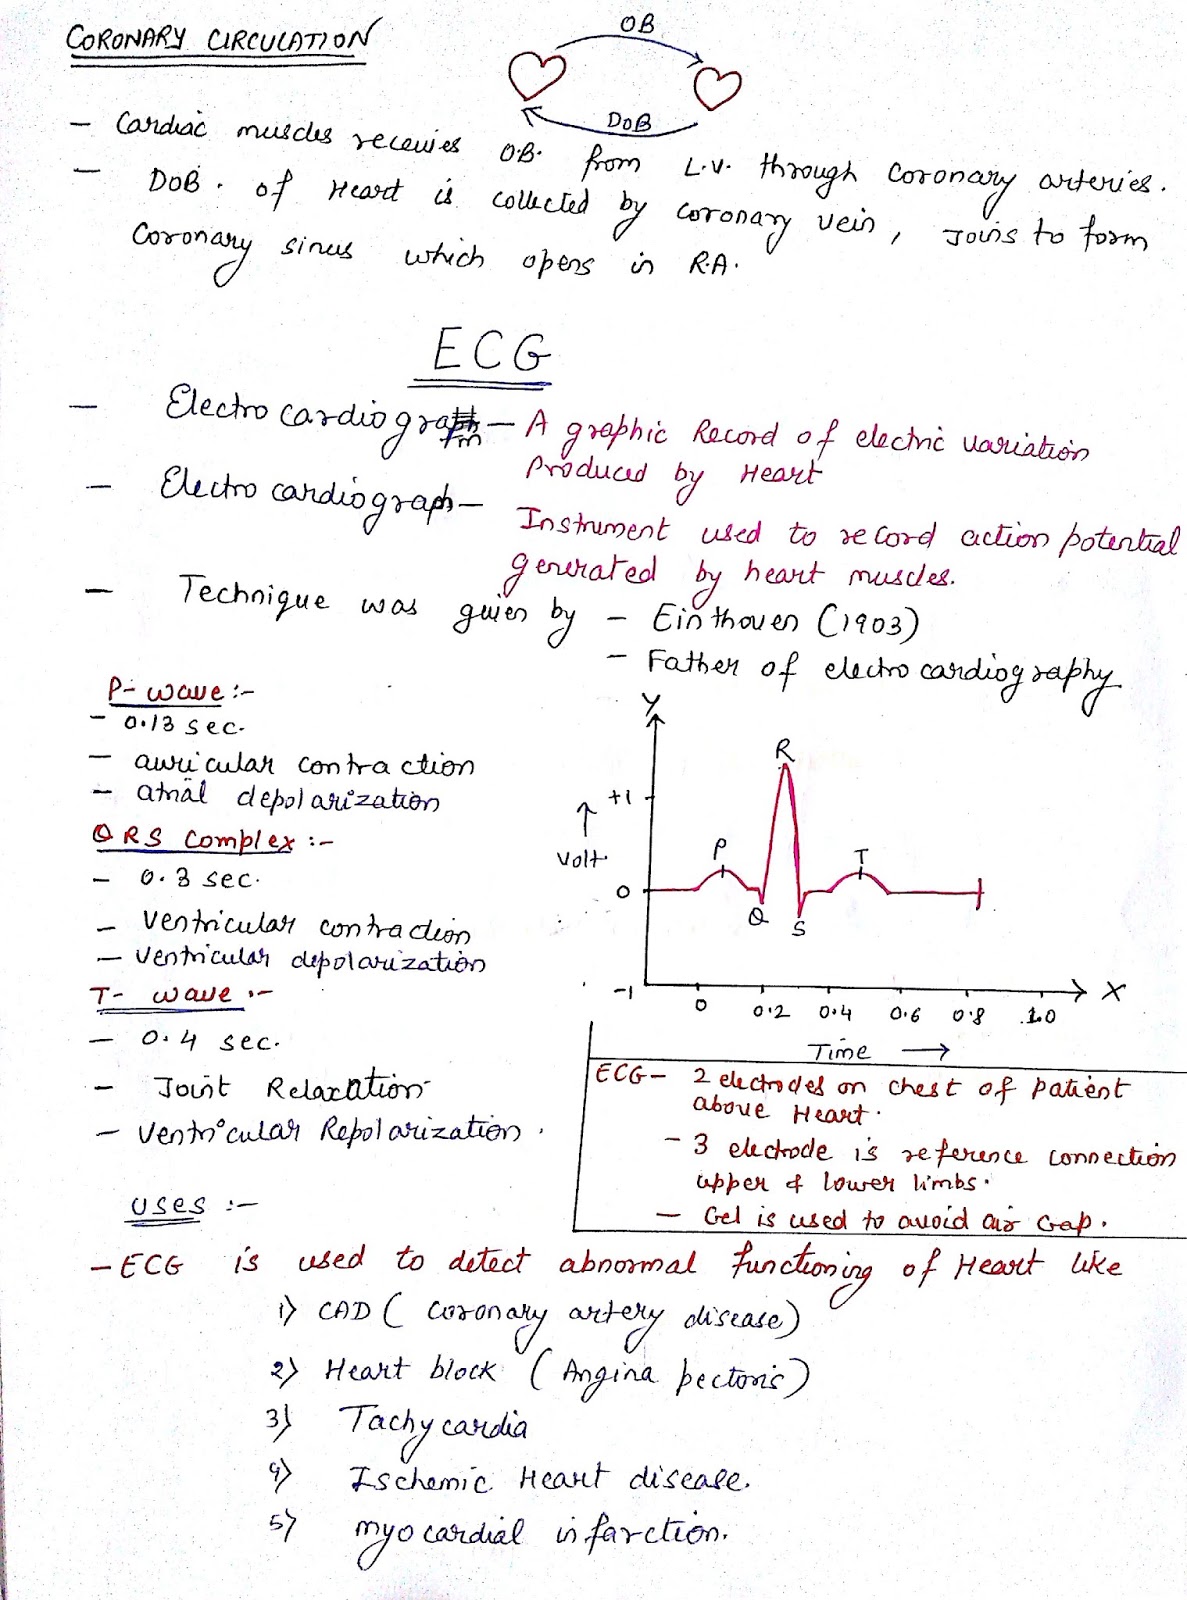 CORONARY CIRCULATION
OB
DOB
- Cardiac muscles receives O.B. from L.V. through coronary arteries.
- DOB. of Heart is collected by coronary vein, Joins to form
Coronary sinus which opens in R.A.
ECG
- Electro cardiogram - A graphic Record of electric variation
Produced by Heart
- Electro cardiograph - Instrument used to record action potential
generated by heart muscles.
- Technique was given by - Einthoven (1903)
- Father of electro cardiography
P- wave :-
- 0.13 sec.
- auricular contraction
- atrial depolarization
QRS Complex :-
- 0.3 sec.
- Ventricular contraction
- Ventricular depolarization
T- wave :-
- 0.4 sec.
- Joint Relaxation
- Ventricular Repolarization.
Y
R
+1
Volt.
P
T
0
Q
S
-1
X
0 0.2 0.4 0.6 0.8 1.0
Time
ECG - 2 electrodes on chest of patient
above Heart.
- 3 electrode is reference connection
upper & lower limbs.
- Gel is used to avoid air Gap.
uses :-
- ECG is used to detect abnormal functioning of Heart like
1) CAD ( Coronary artery disease)
2) Heart block ( Angina pectoris)
3) Tachy cardia
4) Ischemic Heart disease.
5) myocardial infarction.